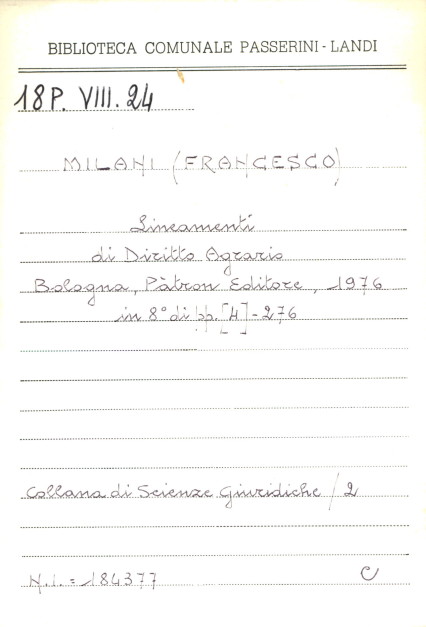 BIBLIOTECA COMUNALE PASSERINI - LANDI
18P. VIII. 24
MILANI (FRANCESCO)
Lineamenti
di Diritto Agrario
Bologna, Pàtron Editore, 1976
in 8° di pp. [4] - 276
Collana di Scienze Giuridiche / 2
N.I. = 184377 C